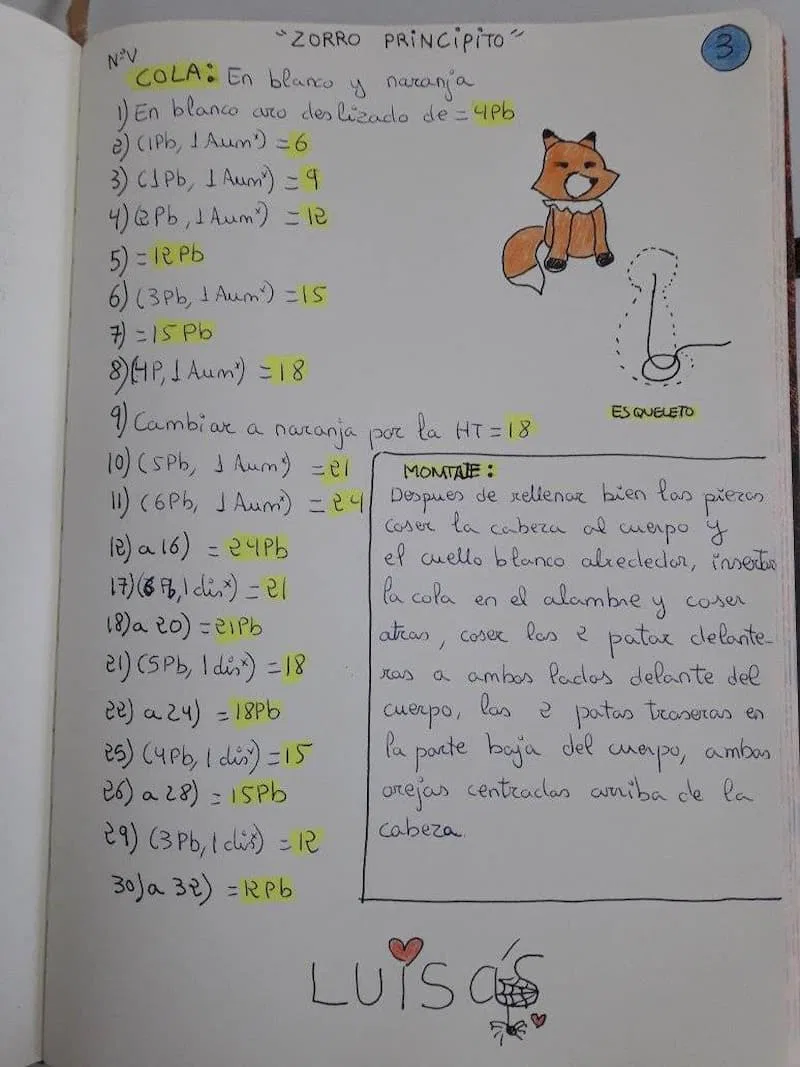 "ZORRO PRINCIPITO"
3
NºV
COLA: En blanco y naranja
1) En blanco aro deslizado de = 4Pb
2) (1Pb, 1 Aumˣ) = 6
3) (1Pb, 1 Aumˣ) = 9
4) (2Pb, 1 Aumˣ) = 12
5) = 12Pb
6) (3Pb, 1 Aumˣ) = 15
7) = 15Pb
8) (4P, 1 Aumˣ) = 18
9) Cambiar a naranja por la HT = 18
10) (5Pb, 1 Aumˣ) = 21
11) (6Pb, 1 Aumˣ) = 24
12) a 16) = 24Pb
17) (6Pb, 1 disˣ) = 21
18) a 20) = 21Pb
21) (5Pb, 1 disˣ) = 18
22) a 24) = 18Pb
25) (4Pb, 1 disˣ) = 15
26) a 28) = 15Pb
29) (3Pb, 1 disˣ) = 12
30) a 32) = 12Pb
ESQUELETO
MONTAJE:
Despues de rellenar bien las piezas
coser la cabeza al cuerpo y
el cuello blanco alrededor, insertar
la cola en el alambre y coser
atras, coser las 2 patas delante-
ras a ambos lados delante del
cuerpo, las 2 patas traseras en
la parte baja del cuerpo, ambas
orejas centradas arriba de la
cabeza.
LUISA'S